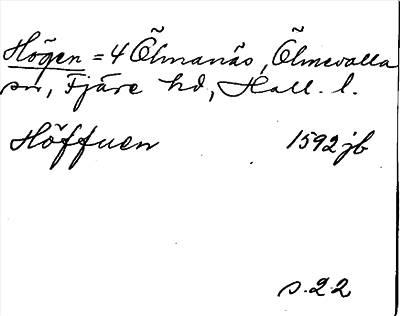 Högen = 4 Ölmanäs, Ölmevalla
sn, Fjäre hd, Hall. l.
Höffuen 1592 jb
s. 22